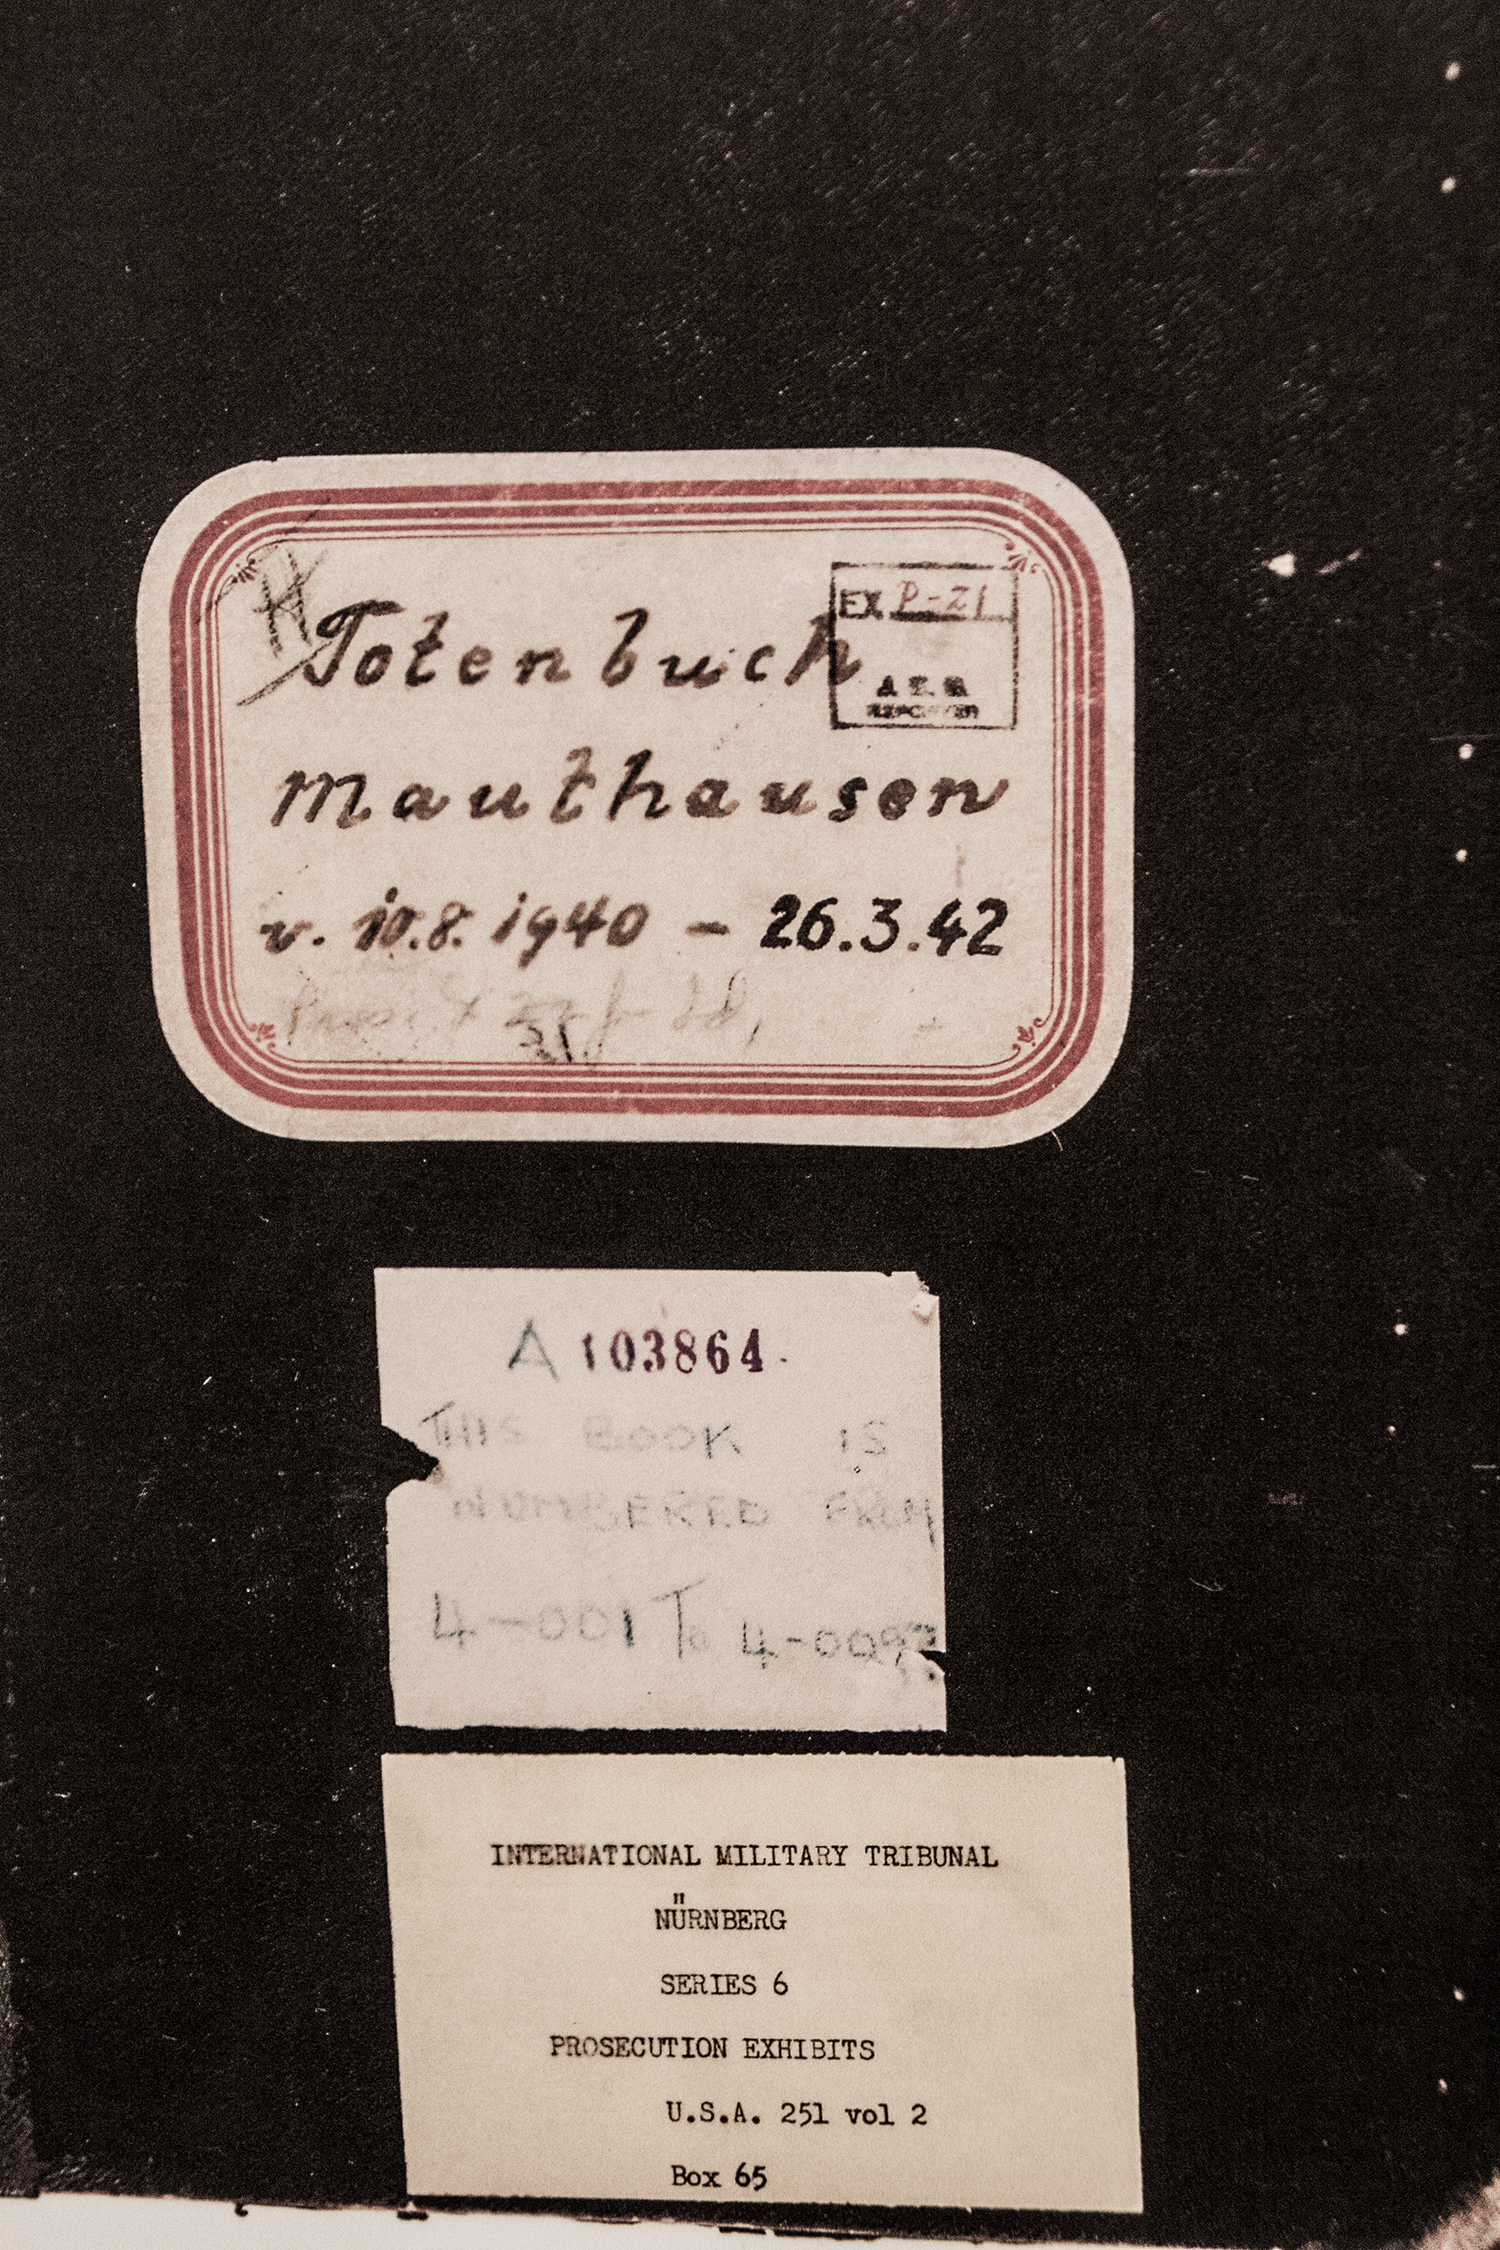 Totenbuch
EX P-21
Mauthausen
v. 10.8.1940 - 26.3.42
A 103864
THIS BOOK IS
NUMBERED FROM
4-001 To
INTERNATIONAL MILITARY TRIBUNAL
NÜRNBERG
SERIES 6
PROSECUTION EXHIBITS
U.S.A. 251 vol 2
Box 65